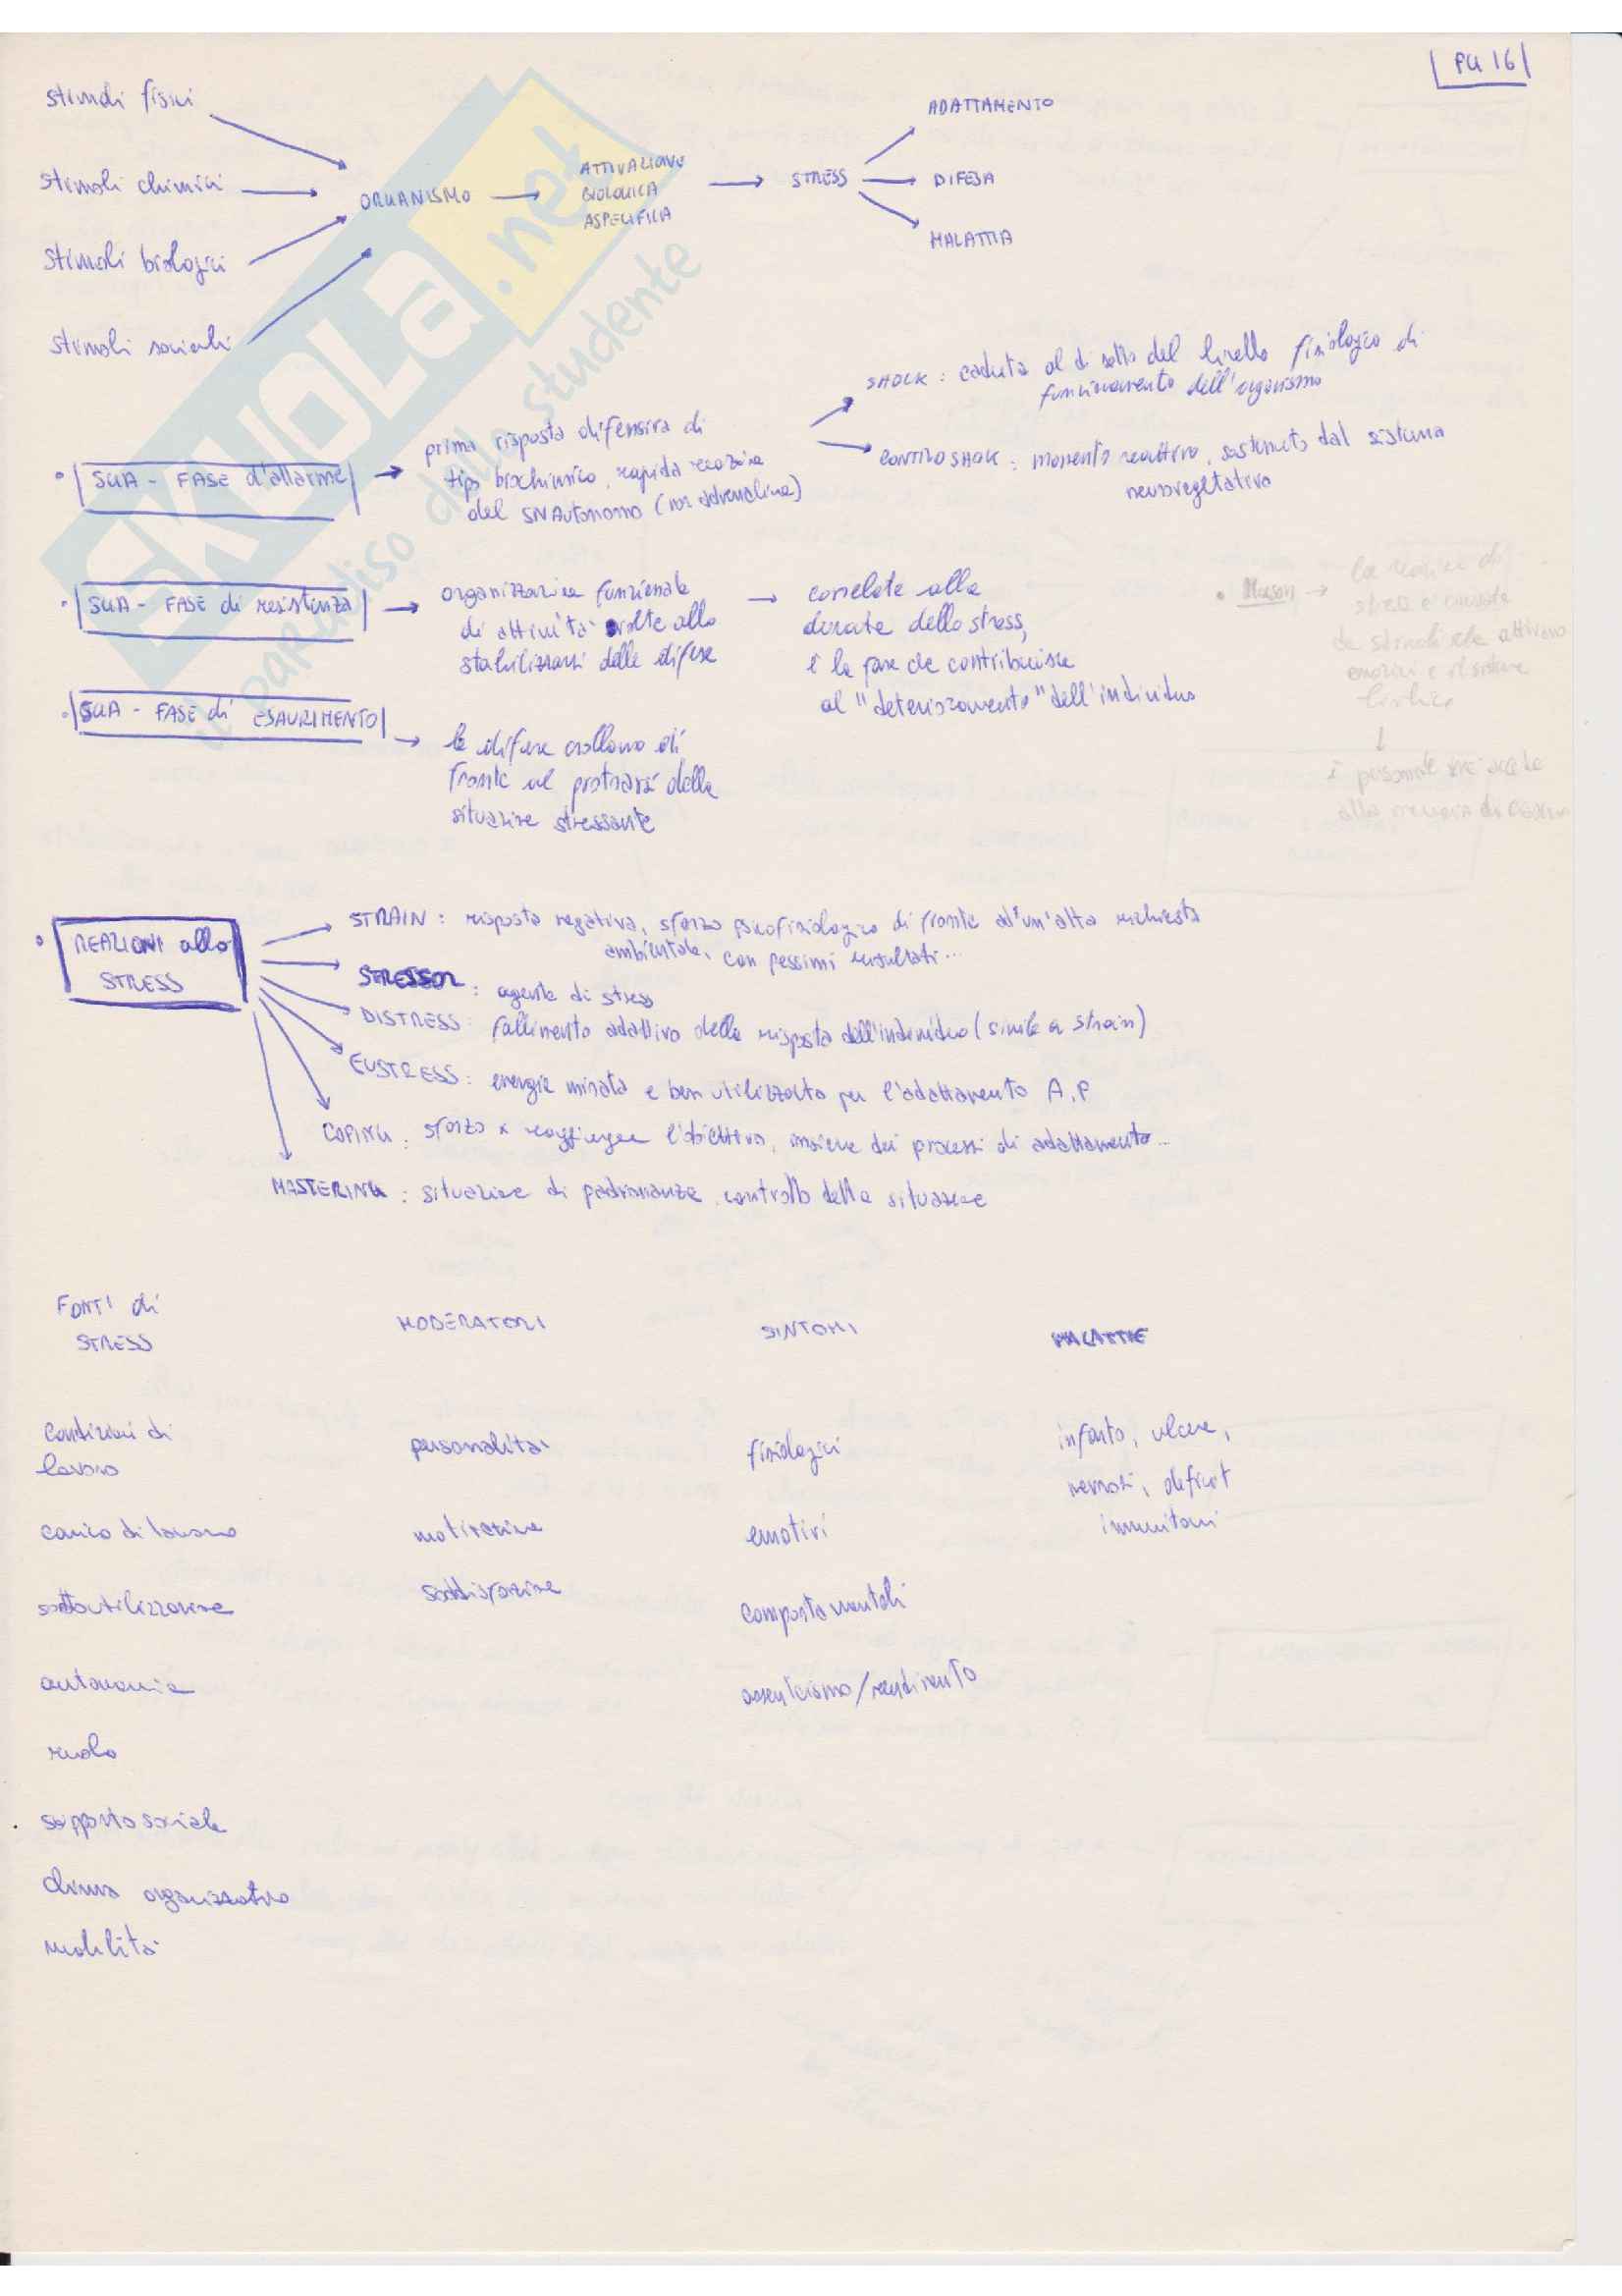 PG 16
stimoli fisici
stimoli chimici
stimoli biologici
stimoli sociali
ORGANISMO
ATTIVAZIONE
BIOLOGICA
ASPECIFICA
STRESS
ADATTAMENTO
DIFESA
MALATTIA
SKUOLA.net
il paradiso dello studente
SGA - FASE d'allarme
prima risposta difensiva di
tipo biochimico, rapida reazione
del SNAutonomo (noradrenalina)
SHOCK: caduta al di sotto del livello fisiologico di
funzionamento dell'organismo
CONTROSHOCK: momento reattivo, sostenuto dal sistema
neurovegetativo
SGA - FASE di resistenza
organizzazione funzionale
di attività volte allo
stabilizzarsi delle difese
correlate alla
durata dello stress,
è la fase che contribuisce
al "deterioramento" dell'individuo
Mason
la reazione di
stress è causata
da stimoli che attivano
emozioni e il sistema
limbico
è personale
SGA - FASE di ESAURIMENTO
le difese crollano di
fronte al protrarsi della
situazione stressante
REAZIONI allo
STRESS
STRAIN: risposta negativa, sforzo psicofisiologico di fronte ad un'alta richiesta
ambientale, con pessimi risultati...
STRESSOR: agente di stress
DISTRESS: fallimento adattivo della risposta dell'individuo (simile a strain)
EUSTRESS: energia mirata e ben utilizzata per l'adattamento A.P
COPING: sforzo x raggiungere l'obiettivo, insieme dei processi di adattamento...
MASTERING: situazione di padronanza, controllo della situazione
FONTI di
STRESS
MODERATORI
SINTOMI
MALATTIE
condizioni di
lavoro
personalità
fisiologici
infarto, ulcere,
nevrosi, deficit
immunitari
carico di lavoro
motivazione
emotivi
sottoutilizzazione
soddisfazione
comportamentali
autonomia
assenteismo/rendimento
ruolo
supporto sociale
clima organizzativo
mobilità